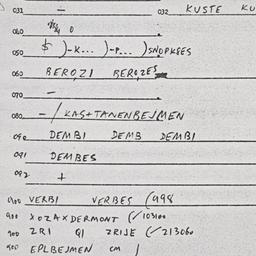 031 — 032 KUSTE KU
040 0
050 $ )-K... )-P... )SNOPKEES
060 BEROZI BEROZES
070 —
080 - / KAS+TANENBEJMEN
090 DEMBI DEMB DEMBI
091 DEMBES
092 +
VERBI VERBES (998
900 XOZAXDERMONT (✓103100
900 ZRI GI ZRIJE (✓213060
900 EPLBEJMEN CM /